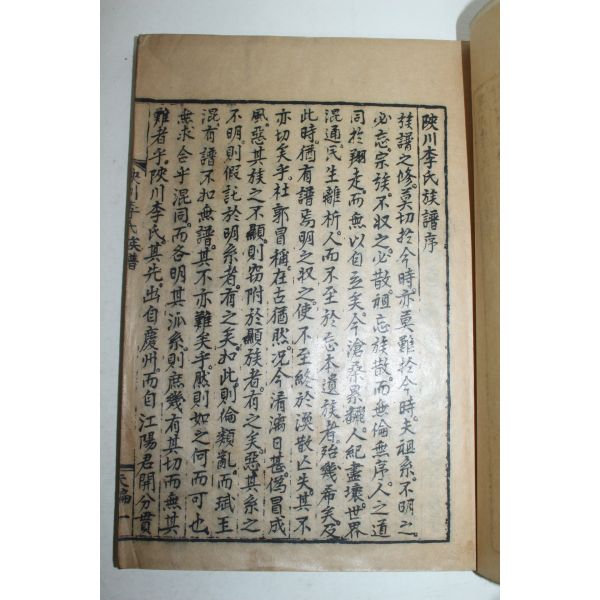 陜川李氏族譜序
族譜之修莫切於今時亦莫難於今時夫祖系不明之
必忘宗族不収之必散祖忘族散而無倫無序人之道
同於翔走而無以自立矣今滄桑累飜人紀盡壞世界
混通民生離析人而不至於忘本遺族者殆幾希矣及
此時猶有譜焉明之収之使不至終於渙散亡失其不
亦切矣乎杜郭冒稱在古猶然况今淆漓日甚僞冒成
風惡其族之不顯則窃附於顯族者有之矣惡其系之
不明則假託於明系者有之矣如此則倫類亂而珷玉
混有譜不如無譜其不亦難矣乎然則如之何而可也
無求合乎混同而各明其派系則庶幾有其切而無其
難者乎陜川李氏其先出自慶州而自江陽君開分貫
川李氏族譜
天編 一